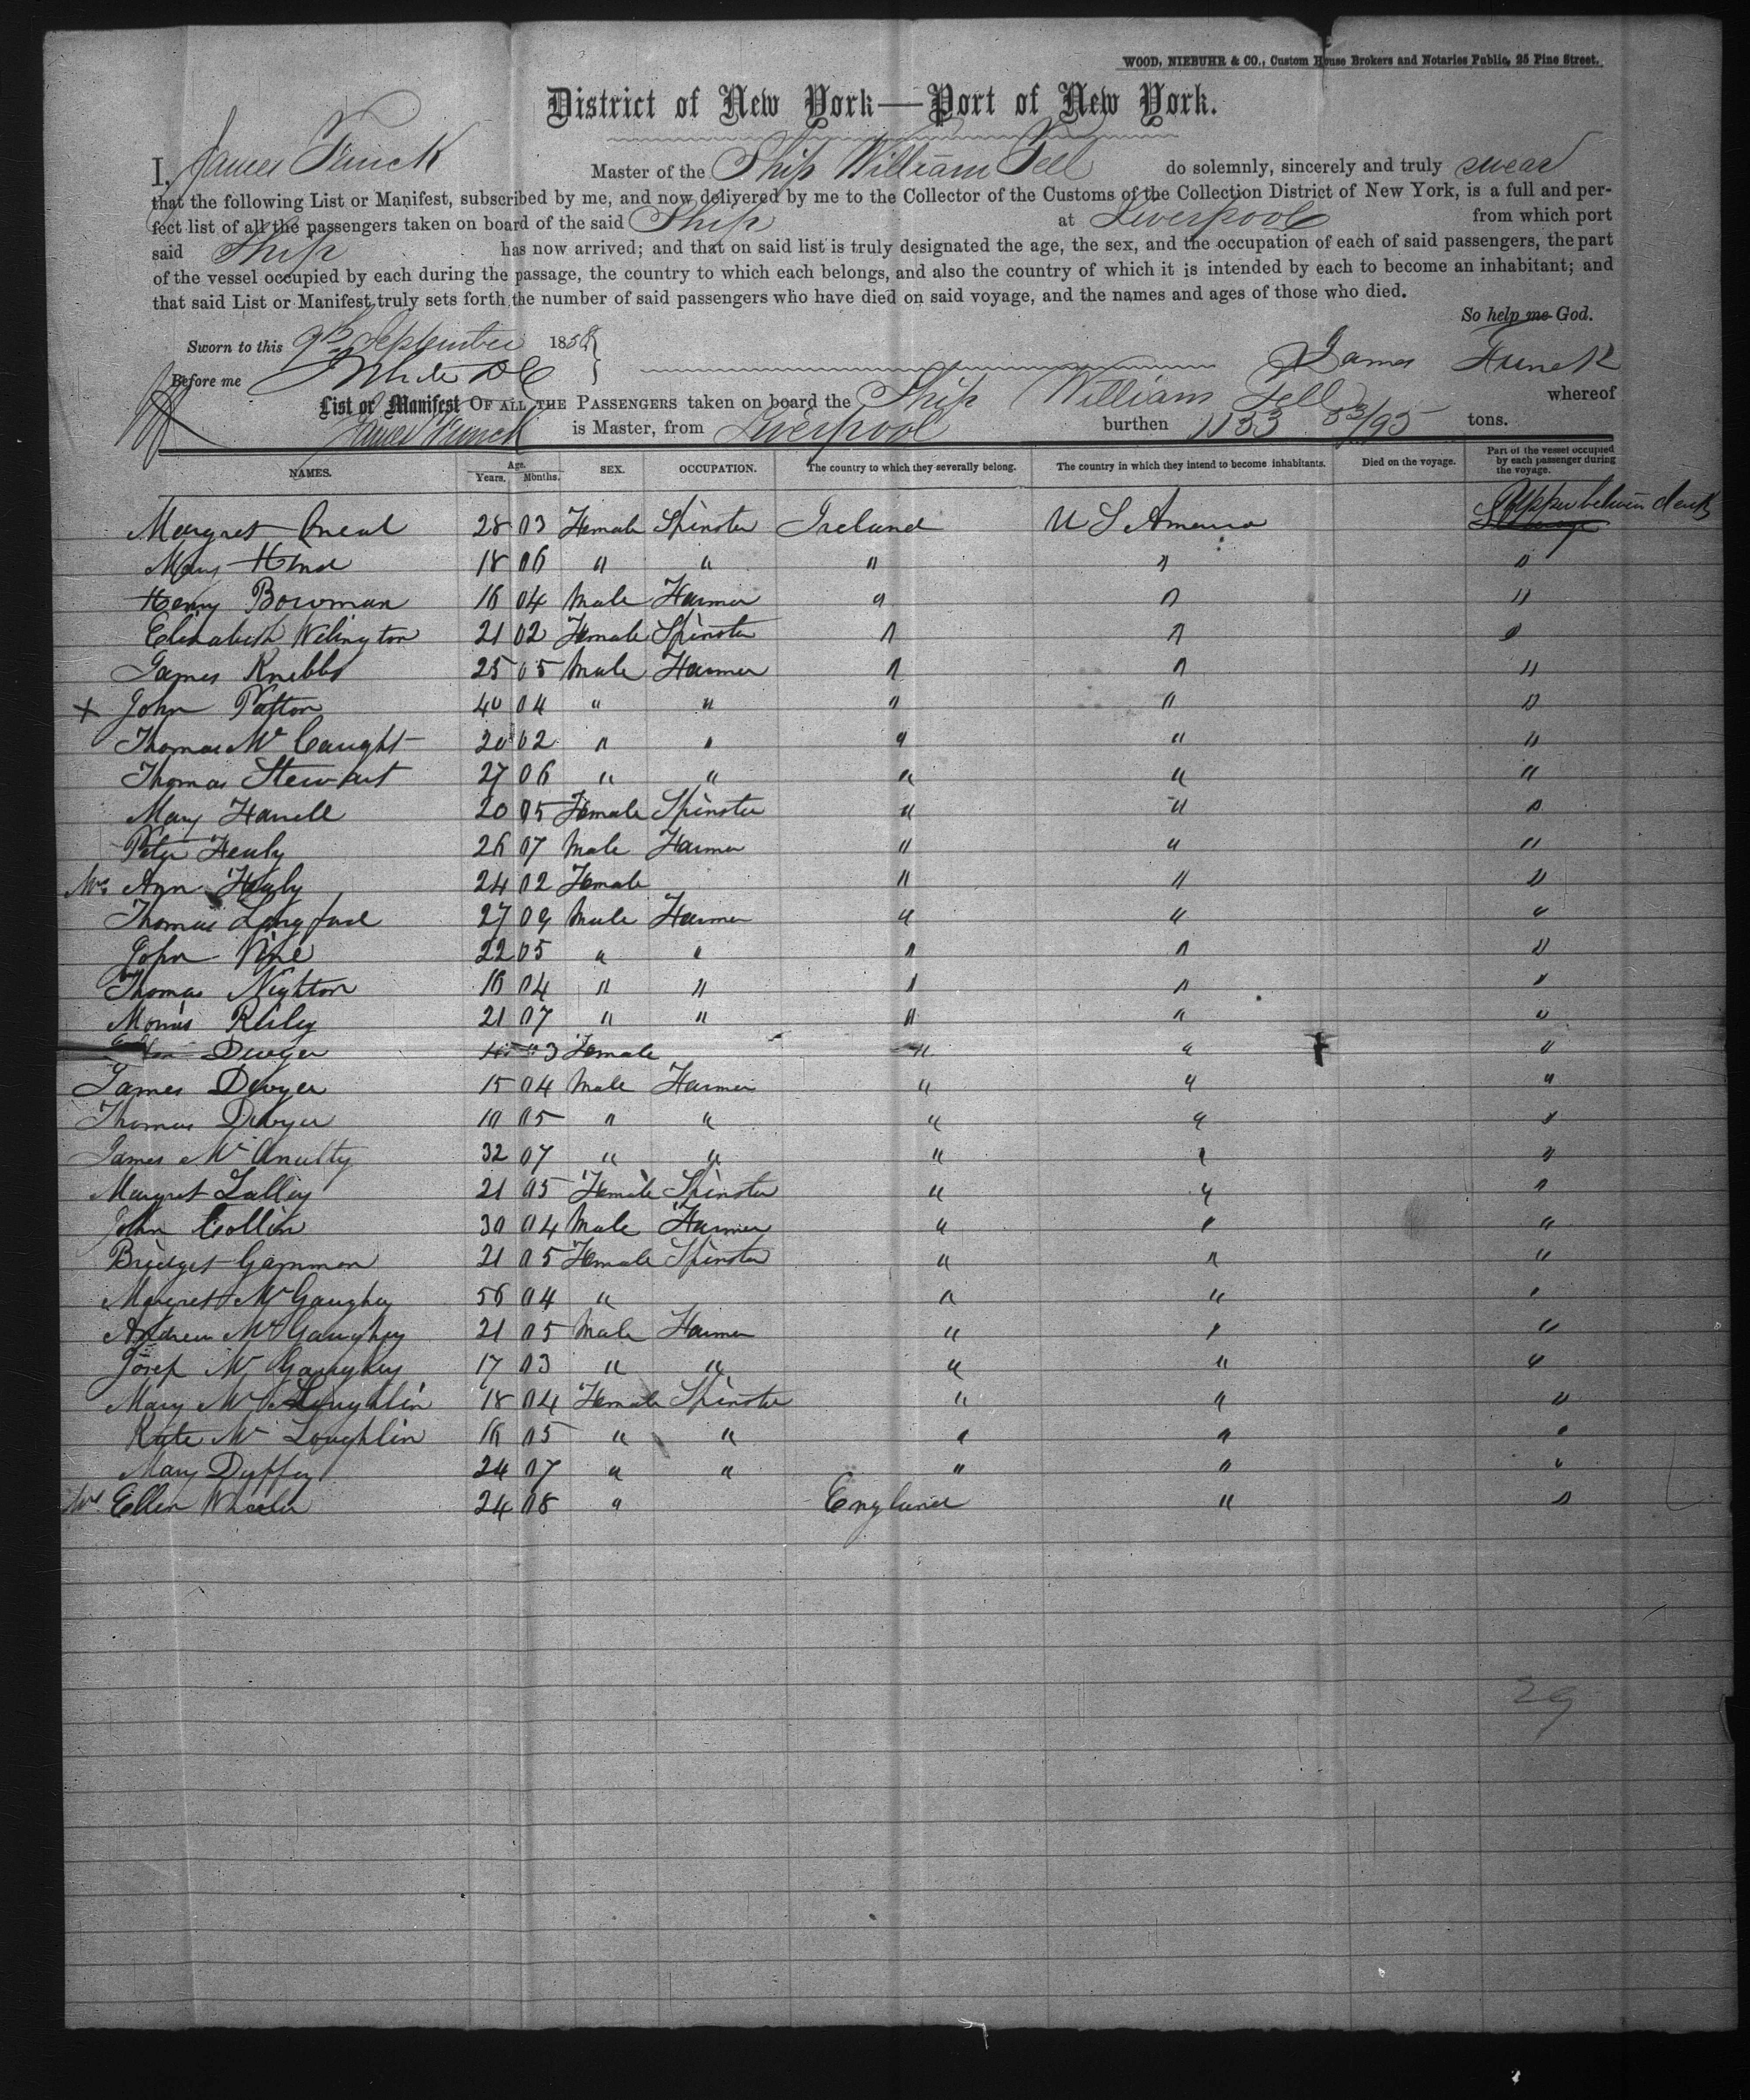 WOOD, NIEBUHR & CO., Custom House Brokers and Notaries Public, 25 Pine Street.
District of New York—Port of New York.
I, James Funck Master of the Ship William Tell do solemnly, sincerely and truly swear
that the following List or Manifest, subscribed by me, and now delivered by me to the Collector of the Customs of the Collection District of New York, is a full and per-
fect list of all the passengers taken on board of the said Ship at Liverpool from which port
said Ship has now arrived; and that on said list is truly designated the age, the sex, and the occupation of each of said passengers, the part
of the vessel occupied by each during the passage, the country to which each belongs, and also the country of which it is intended by each to become an inhabitant; and
that said List or Manifest truly sets forth the number of said passengers who have died on said voyage, and the names and ages of those who died.
So help me God.
Sworn to this 9th September 1858
James Funck
Before me White DC
List or Manifest OF ALL THE PASSENGERS taken on board the Ship William Tell whereof
James Funck is Master, from Liverpool burthen 1153 53/95 tons.
NAMES. Age. Years. Months. SEX. OCCUPATION. The country to which they severally belong. The country in which they intend to become inhabitants. Died on the voyage. Part of the vessel occupied by each passenger during the voyage.
Margret Oneal 28 03 Female Spinster Ireland U S America Upper between deck
Mary Hind 18 06 " " " " "
Henry Bowman 16 04 Male Farmer " " "
Elizabeth Welington 21 02 Female Spinster " " "
James Knebbs 25 05 Male Farmer " " "
x John Patton 40 04 " " " " "
Thomas Mc Caught 20 02 " " " " "
Thomas Stewart 27 06 " " " " "
Mary Farrell 20 05 Female Spinster " " "
Peter Healy 26 07 Male Farmer " " "
Mrs Ann Healy 24 02 Female " " "
Thomas Langford 27 09 Male Farmer " " "
John Vine 22 05 " " " " "
Thomas Nighton 16 04 " " " " "
Morris Reiley 21 07 " " " " "
Dwyer 03 Female " " "
James Dwyer 15 04 Male Farmer " " "
Thomas Dwyer 10 05 " " " " "
James Mc Anulty 32 07 " " " " "
Margret Lalley 21 05 Female Spinster " " "
John Collin 30 04 Male Farmer " " "
Bridget Gammon 21 05 Female Spinster " " "
Margret Mc Gaughey 56 04 " " " "
Andrew Mc Gaughey 21 05 Male Farmer " " "
Josef Mc Gaughey 17 03 " " " " "
Mary Mc Loughlin 18 04 Female Spinster " " "
Kate Mc Loughlin 16 05 " " " " "
Mary Duffey 24 07 " " " " "
Mrs Ellen Wheeler 24 08 " England " "
29